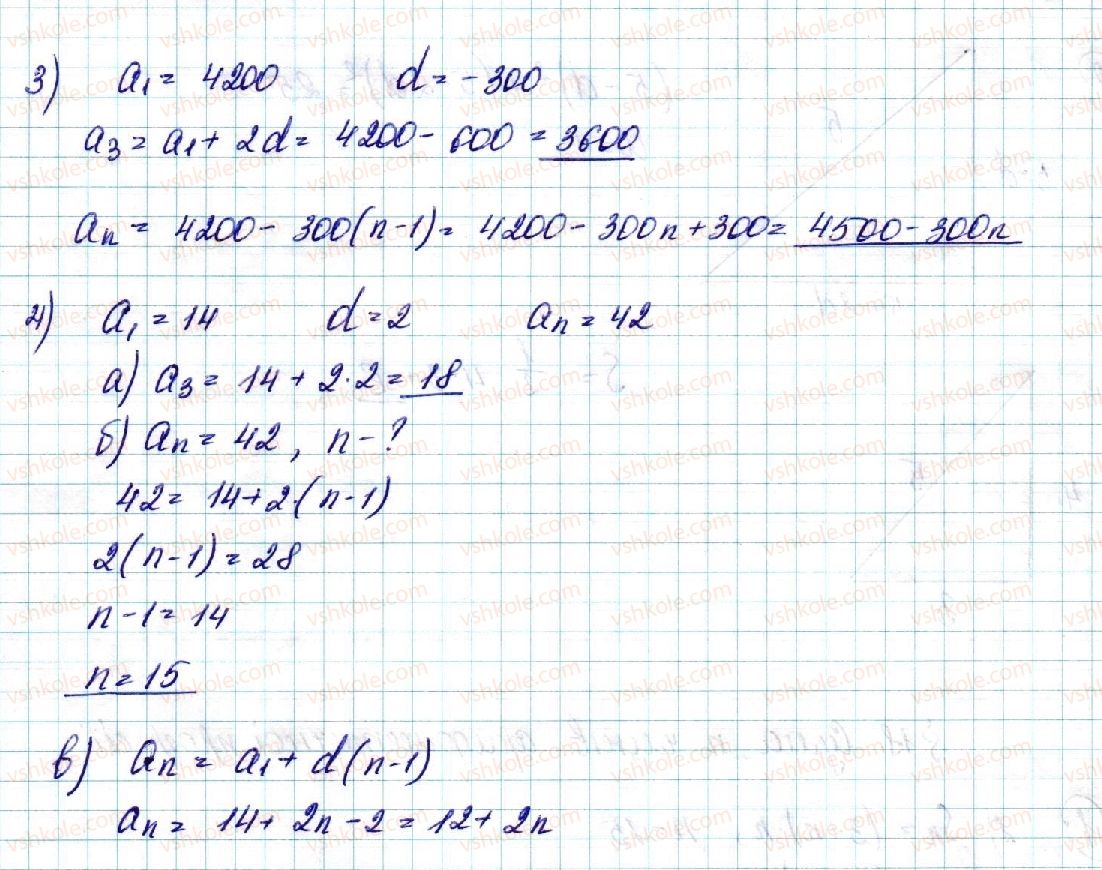 3) a₁ = 4200 d = -300
a₃ = a₁ + 2d = 4200 - 600 = 3600
aₙ = 4200 - 300(n-1) = 4200 - 300n + 300 = 4500 - 300n
4) a₁ = 14 d = 2 aₙ = 42
а) a₃ = 14 + 2·2 = 18
б) aₙ = 42, n - ?
42 = 14 + 2·(n-1)
2(n-1) = 28
n - 1 = 14
n = 15
в) aₙ = a₁ + d(n-1)
aₙ = 14 + 2n - 2 = 12 + 2n
vshkole.com